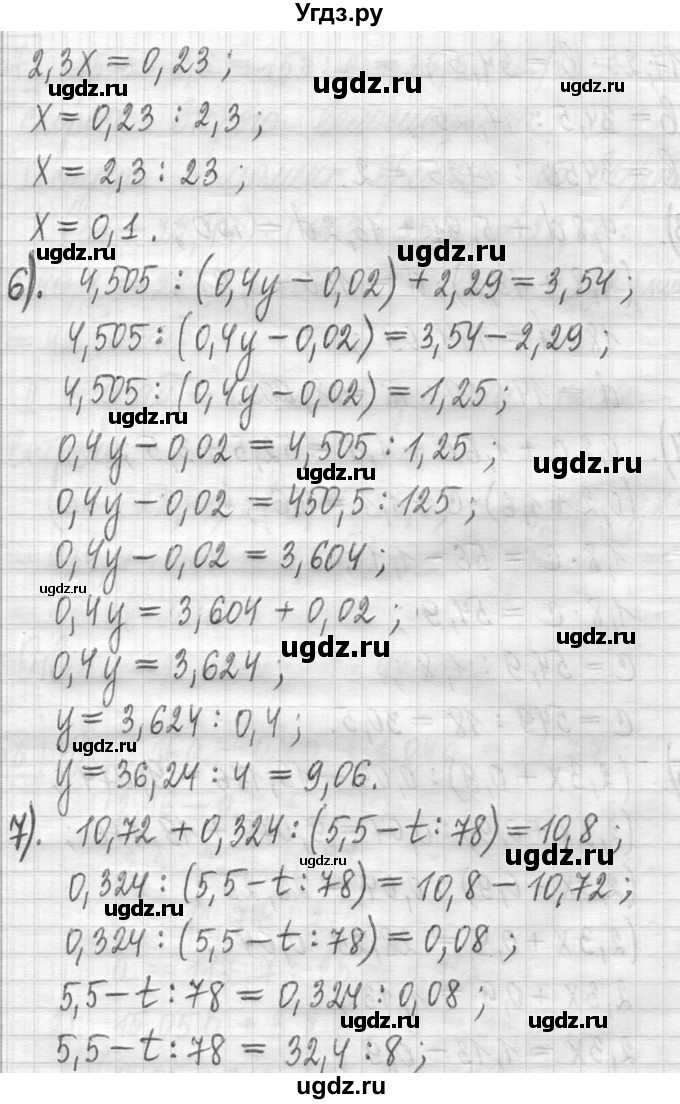 Угдз.ру
2,3x = 0,23 ;
ugdz.ru
ugdz.ru
ugdz.ru
x = 0,23 : 2,3 ;
x = 2,3 : 23 ;
x = 0,1 .
ugdz.ru
ugdz.ru
6). 4,505 : (0,4y – 0,02) + 2,29 = 3,54 ;
4,505 : (0,4y – 0,02) = 3,54 – 2,29 ;
4,505 : (0,4y – 0,02) = 1,25 ;
ugdz.ru
0,4y – 0,02 = 4,505 : 1,25 ;
ugdz.ru
ugdz.ru
0,4y – 0,02 = 450,5 : 125 ;
0,4y – 0,02 = 3,604 ;
ugdz.ru
0,4y = 3,604 + 0,02 ;
ugdz.ru
ugdz.ru
0,4y = 3,624 ;
y = 3,624 : 0,4 ;
ugdz.ru
y = 36,24 : 4 = 9,06.
7). 10,72 + 0,324 : (5,5 – t : 78) = 10,8 ;
ugdz.ru
ugdz.ru
0,324 : (5,5 – t : 78) = 10,8 – 10,72 ;
ugdz.ru
0,324 : (5,5 – t : 78) = 0,08 ;
5,5 – t : 78 = 0,324 : 0,08 ;
ugdz.ru
ugdz.ru
5,5 – t : 78 = 32,4 : 8 ;
ugdz.ru